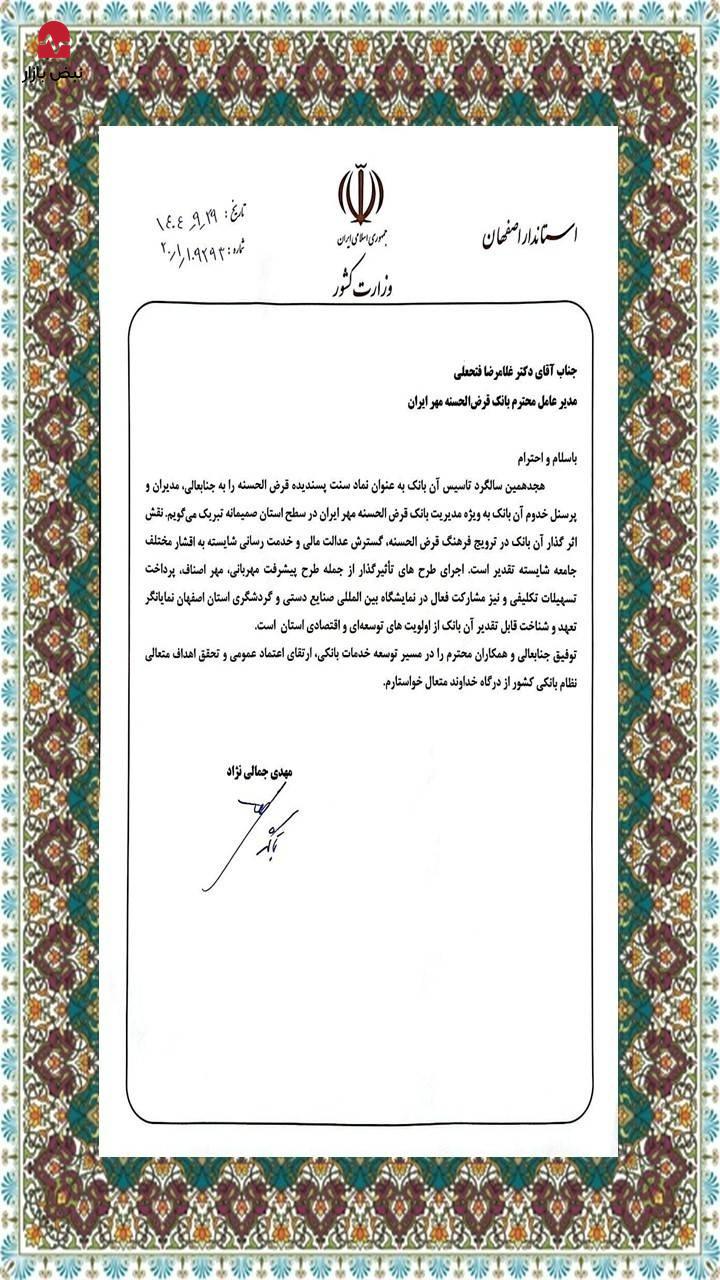 نبض بازار
استاندار اصفهان
جمهوری اسلامی ایران
وزارت کشور
تاریخ: ۱۴۰۴_۹_۲۹
شماره:
جناب آقای دکتر غلامرضا فتحعلی
مدیر عامل محترم بانک قرض‌الحسنه مهر ایران
باسلام و احترام
هجدهمین سالگرد تاسیس آن بانک به عنوان نماد سنت پسندیده قرض الحسنه را به جنابعالی، مدیران و
پرسنل خدوم آن بانک به ویژه مدیریت بانک قرض الحسنه مهر ایران در سطح استان صمیمانه تبریک می‌گویم. نقش
اثر گذار آن بانک در ترویج فرهنگ قرض الحسنه، گسترش عدالت مالی و خدمت رسانی شایسته به اقشار مختلف
جامعه شایسته تقدیر است. اجرای طرح های تأثیرگذار از جمله طرح پیشرفت مهربانی، مهر اصناف، پرداخت
تسهیلات تکلیفی و نیز مشارکت فعال در نمایشگاه بین المللی صنایع دستی و گردشگری استان اصفهان نمایانگر
تعهد و شناخت قابل تقدیر آن بانک از اولویت های توسعه‌ای و اقتصادی استان است.
توفیق جنابعالی و همکاران محترم را در مسیر توسعه خدمات بانکی، ارتقای اعتماد عمومی و تحقق اهداف متعالی
نظام بانکی کشور از درگاه خداوند متعال خواستارم.
مهدی جمالی نژاد